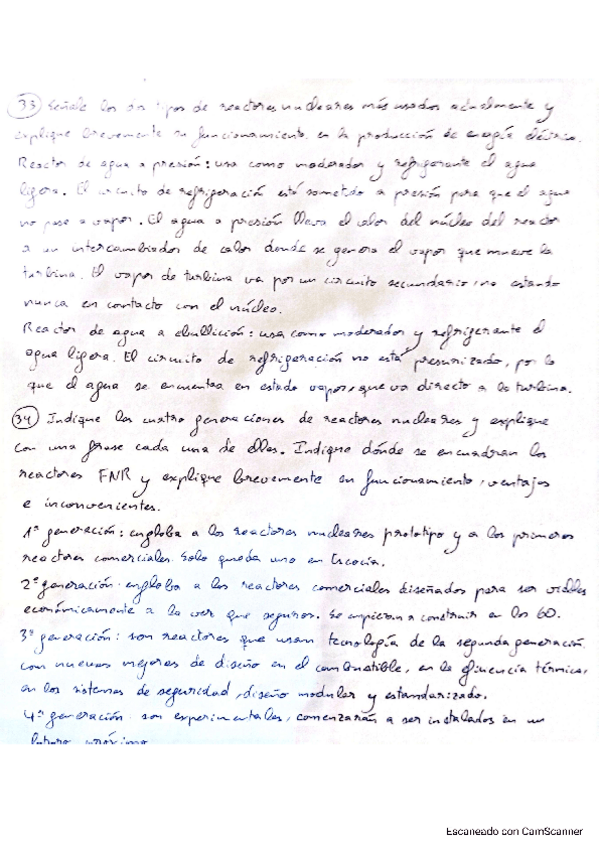 33 Señale los dos tipos de reactores nucleares más usados actualmente y
explique brevemente su funcionamiento en la producción de energía eléctrica.
Reactor de agua a presión: usa como moderador y refrigerante el agua
ligera. El circuito de refrigeración está sometido a presión para que el agua
no pase a vapor. El agua a presión lleva el calor del núcleo del reactor
a un intercambiador de calor donde se genera el vapor que mueve la
turbina. El vapor de turbina va por un circuito secundario, no estando
nunca en contacto con el núcleo.
Reactor de agua a ebullición: usa como moderador y refrigerante el
agua ligera. El circuito de refrigeración no está presurizado, por lo
que el agua se encuentra en estado vapor, que va directo a la turbina.
34 Indique las cuatro generaciones de reactores nucleares y explique
con una frase cada una de ellas. Indique dónde se encuadran los
reactores FNR y explique brevemente su funcionamiento, ventajas
e inconvenientes.
1ª generación: engloba a los reactores nucleares prototipo y a los primeros
reactores comerciales. Solo queda uno en Escocia.
2ª generación: engloba a los reactores comerciales diseñados para ser viables
económicamente a la vez que seguros. Se empiezan a construir en los 60.
3ª generación: son reactores que usan tecnología de la segunda generación
con nuevas mejoras de diseño en el combustible, en la eficiencia térmica,
en los sistemas de seguridad, diseño modular y estandarizado.
4ª generación: son experimentales, comenzarán a ser instalados en un
futuro próximo.
Escaneado con CamScanner